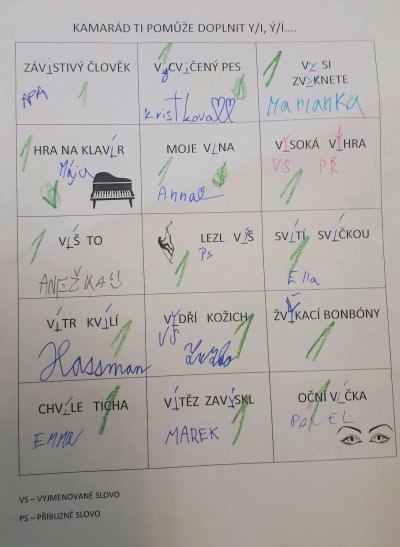 KAMARÁD TI POMŮŽE DOPLNIT Y/I, Ý/Í....
ZÁVISTIVÝ ČLOVĚK
1
VyCVIČENÝ PES
Kristkova
1 VY SI
ZVYKNETE
Marianka
1 HRA NA KLAVÍR
Mája
MOJE VINA
1
Anna
VYSOKÁ VÝHRA
VS PŘ
1
VÍŠ TO
1
ANEŽKA
LEZL VÝŠ
PS
1
SVÍTÍ SVÍČKOU
1
Ella
VÍTR KVÍLÍ
1
Hassman
VYDŘÍ KOŽICH
VS
1
ŽVÝKACÍ BONBÓNY
1
CHVÍLE TICHA
1
EMMA
VÍTĚZ ZAVÝSKL
1
MAREK
OČNÍ VÍČKA
1
PAVEL
VS – VYJMENOVANÉ SLOVO
PS – PŘÍBUZNÉ SLOVO